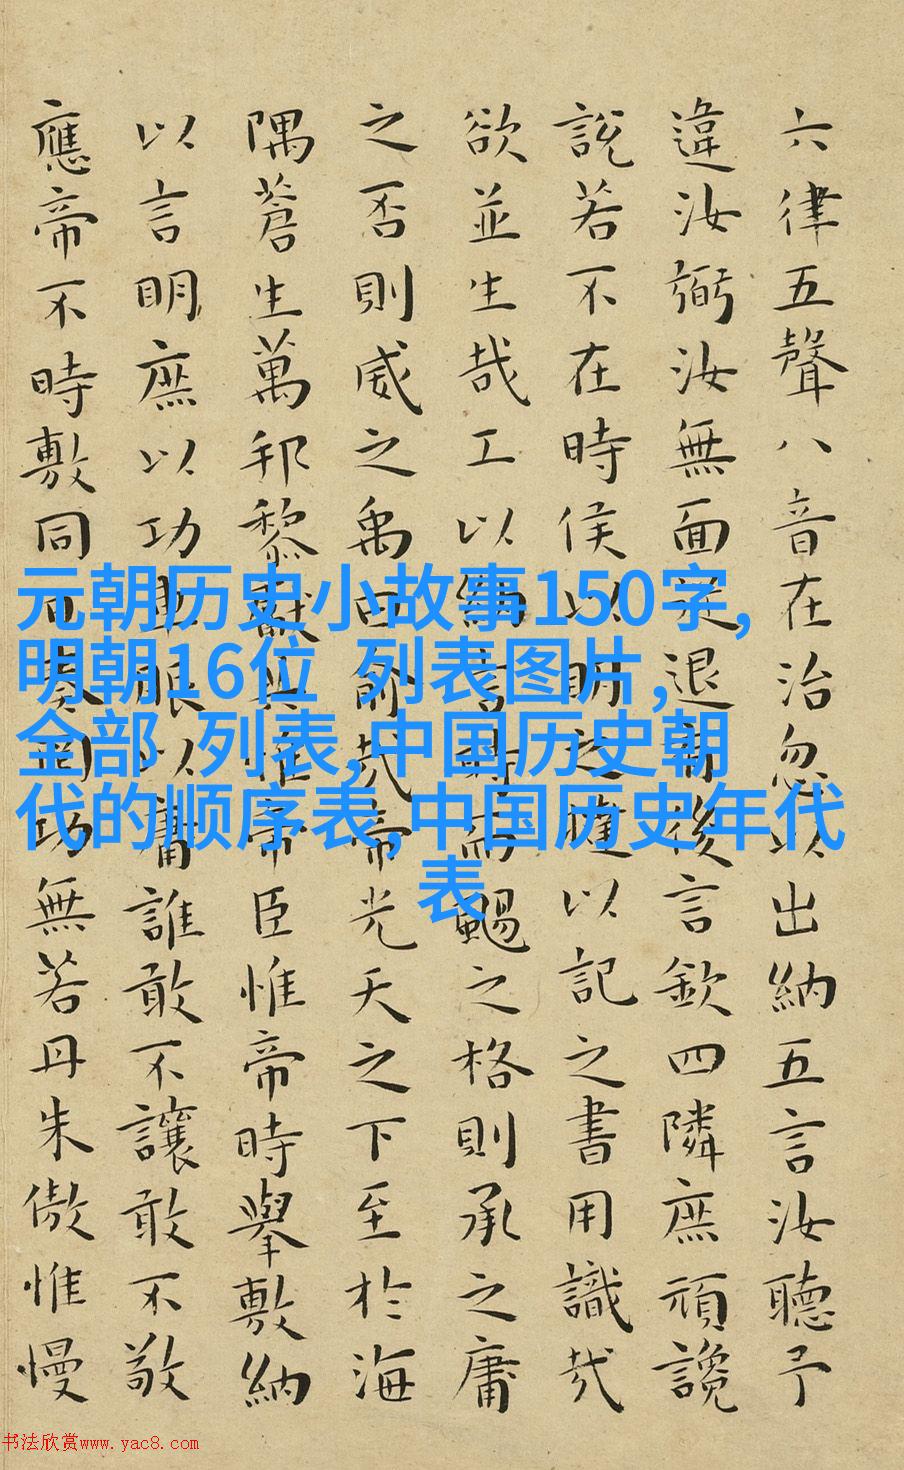 六律五聲八音在治忽以出納五言汝聽予
違汝弼汝無面從退有後言欽四隣庶頑讒
說若不在時侯以明之撻以記之書用識哉
欲並生哉工以納言時而颺之格則承之庸
之否則威之禹曰俞哉帝光天之下至於海
隅蒼生萬邦黎獻共惟帝臣惟帝時舉敷納
以言明庶以功車服以庸誰敢不讓敢不敬
應帝不時敷同日奏罔功無若丹朱傲惟慢
元朝历史小故事150字,
明朝16位 列表图片,
全部 列表,中国历史朝
代的顺序表,中国历史年代
表
书法欣赏www.yac8.com